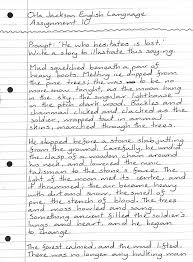 Orla Jackson English Language
Assignment 10
Prompt: 'He who hesitates is lost.'
Write a story to illustrate this saying.
Mud squelched beneath a pair of
heavy boots. Melting ice dripped from
the pine trees; there was to be no
more snow tonight, as the moon hung
in the sky, the singular lighthouse in
the pitch dark wood. Buckles and
chainmail clicked and clacked as the
soldier, wrapped taut in animal
skins, marched through the trees.
He stopped before a stone slab jutting
from the ground. Carefully, he worked
the clasp of a wooden chain around
his neck and lowered the rune
talisman to the stone's face. The
light of the moon met its centre, and
it thrummed; the air became heavy
with dirt and snow, the smell of
pine, the stench of blood. The trees
and moss howled and sang.
Something ancient filled the soldier's
lungs and heart, and he began
to change
The forest calmed, and the wind lifted.
There was no longer any hulking man